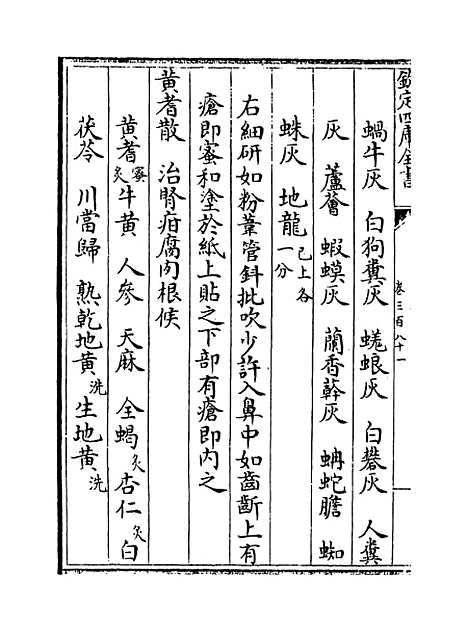 欽定四庫全書
卷三百八十一
蝸牛灰 白狗糞灰 蜣蜋灰 白礬灰 人糞
灰 蘆薈 蝦蟆灰 蘭香簳灰 蚺蛇膽 蜘
蛛灰 地龍已上各一分
右細研如粉葦管斜批吹少許入鼻中如齒齗上有
瘡即蜜和塗於紙上貼之下部有瘡即内之
黄耆散 治腎疳腐肉根候
黄耆蜜炙牛黄 人參 天麻 全蝎炙杏仁炙白
茯苓 川當歸 熟乾地黄洗生地黄洗